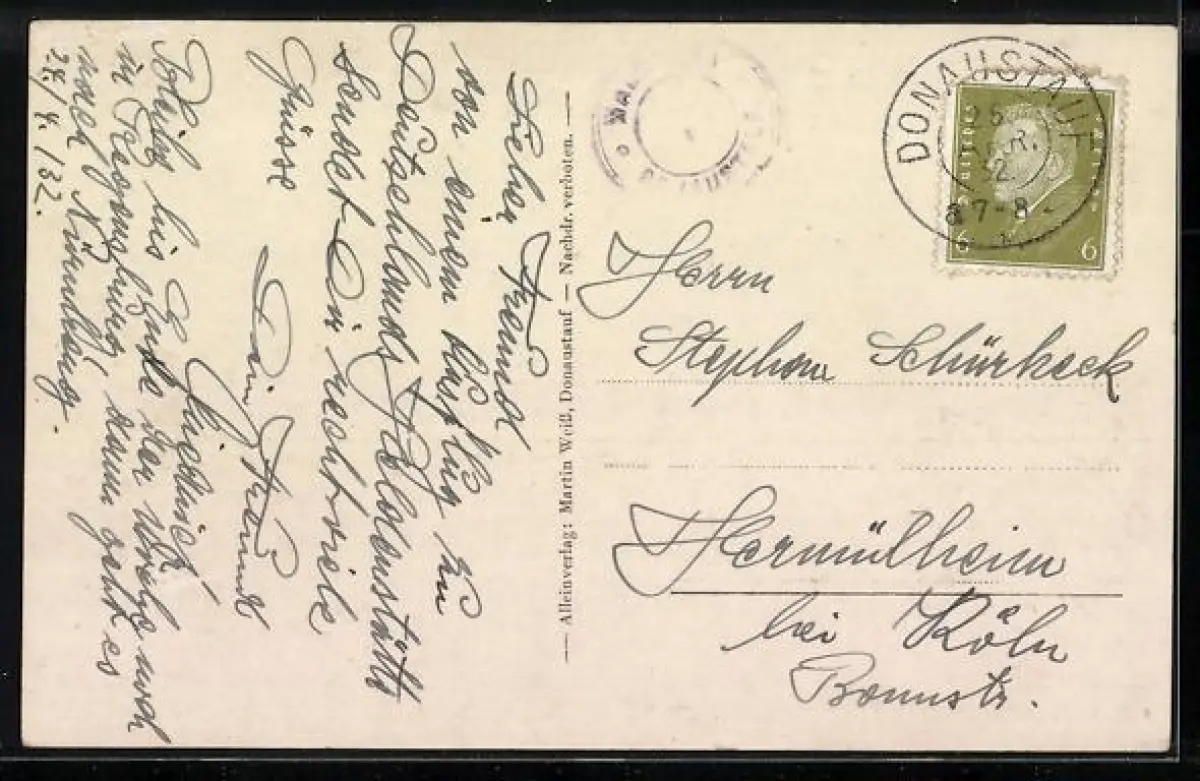 Lieber Freund
von einem Ausflug zu
Deutschlands Heldenstätte
sendet Dir recht viele
Grüsse
Dein Freund
Bleibe bis Ende der Woche noch
in Regensburg, dann geht es
nach Nürnberg.
28./4./32.
— Alleinverlag: Martin Weiß, Donaustauf — Nachdr. verboten. —
DONAUSTAUF
32
7-8
6
6
Herrn
Stephan Schürheck
Hermülheim
bei Köln
Bonnstr.